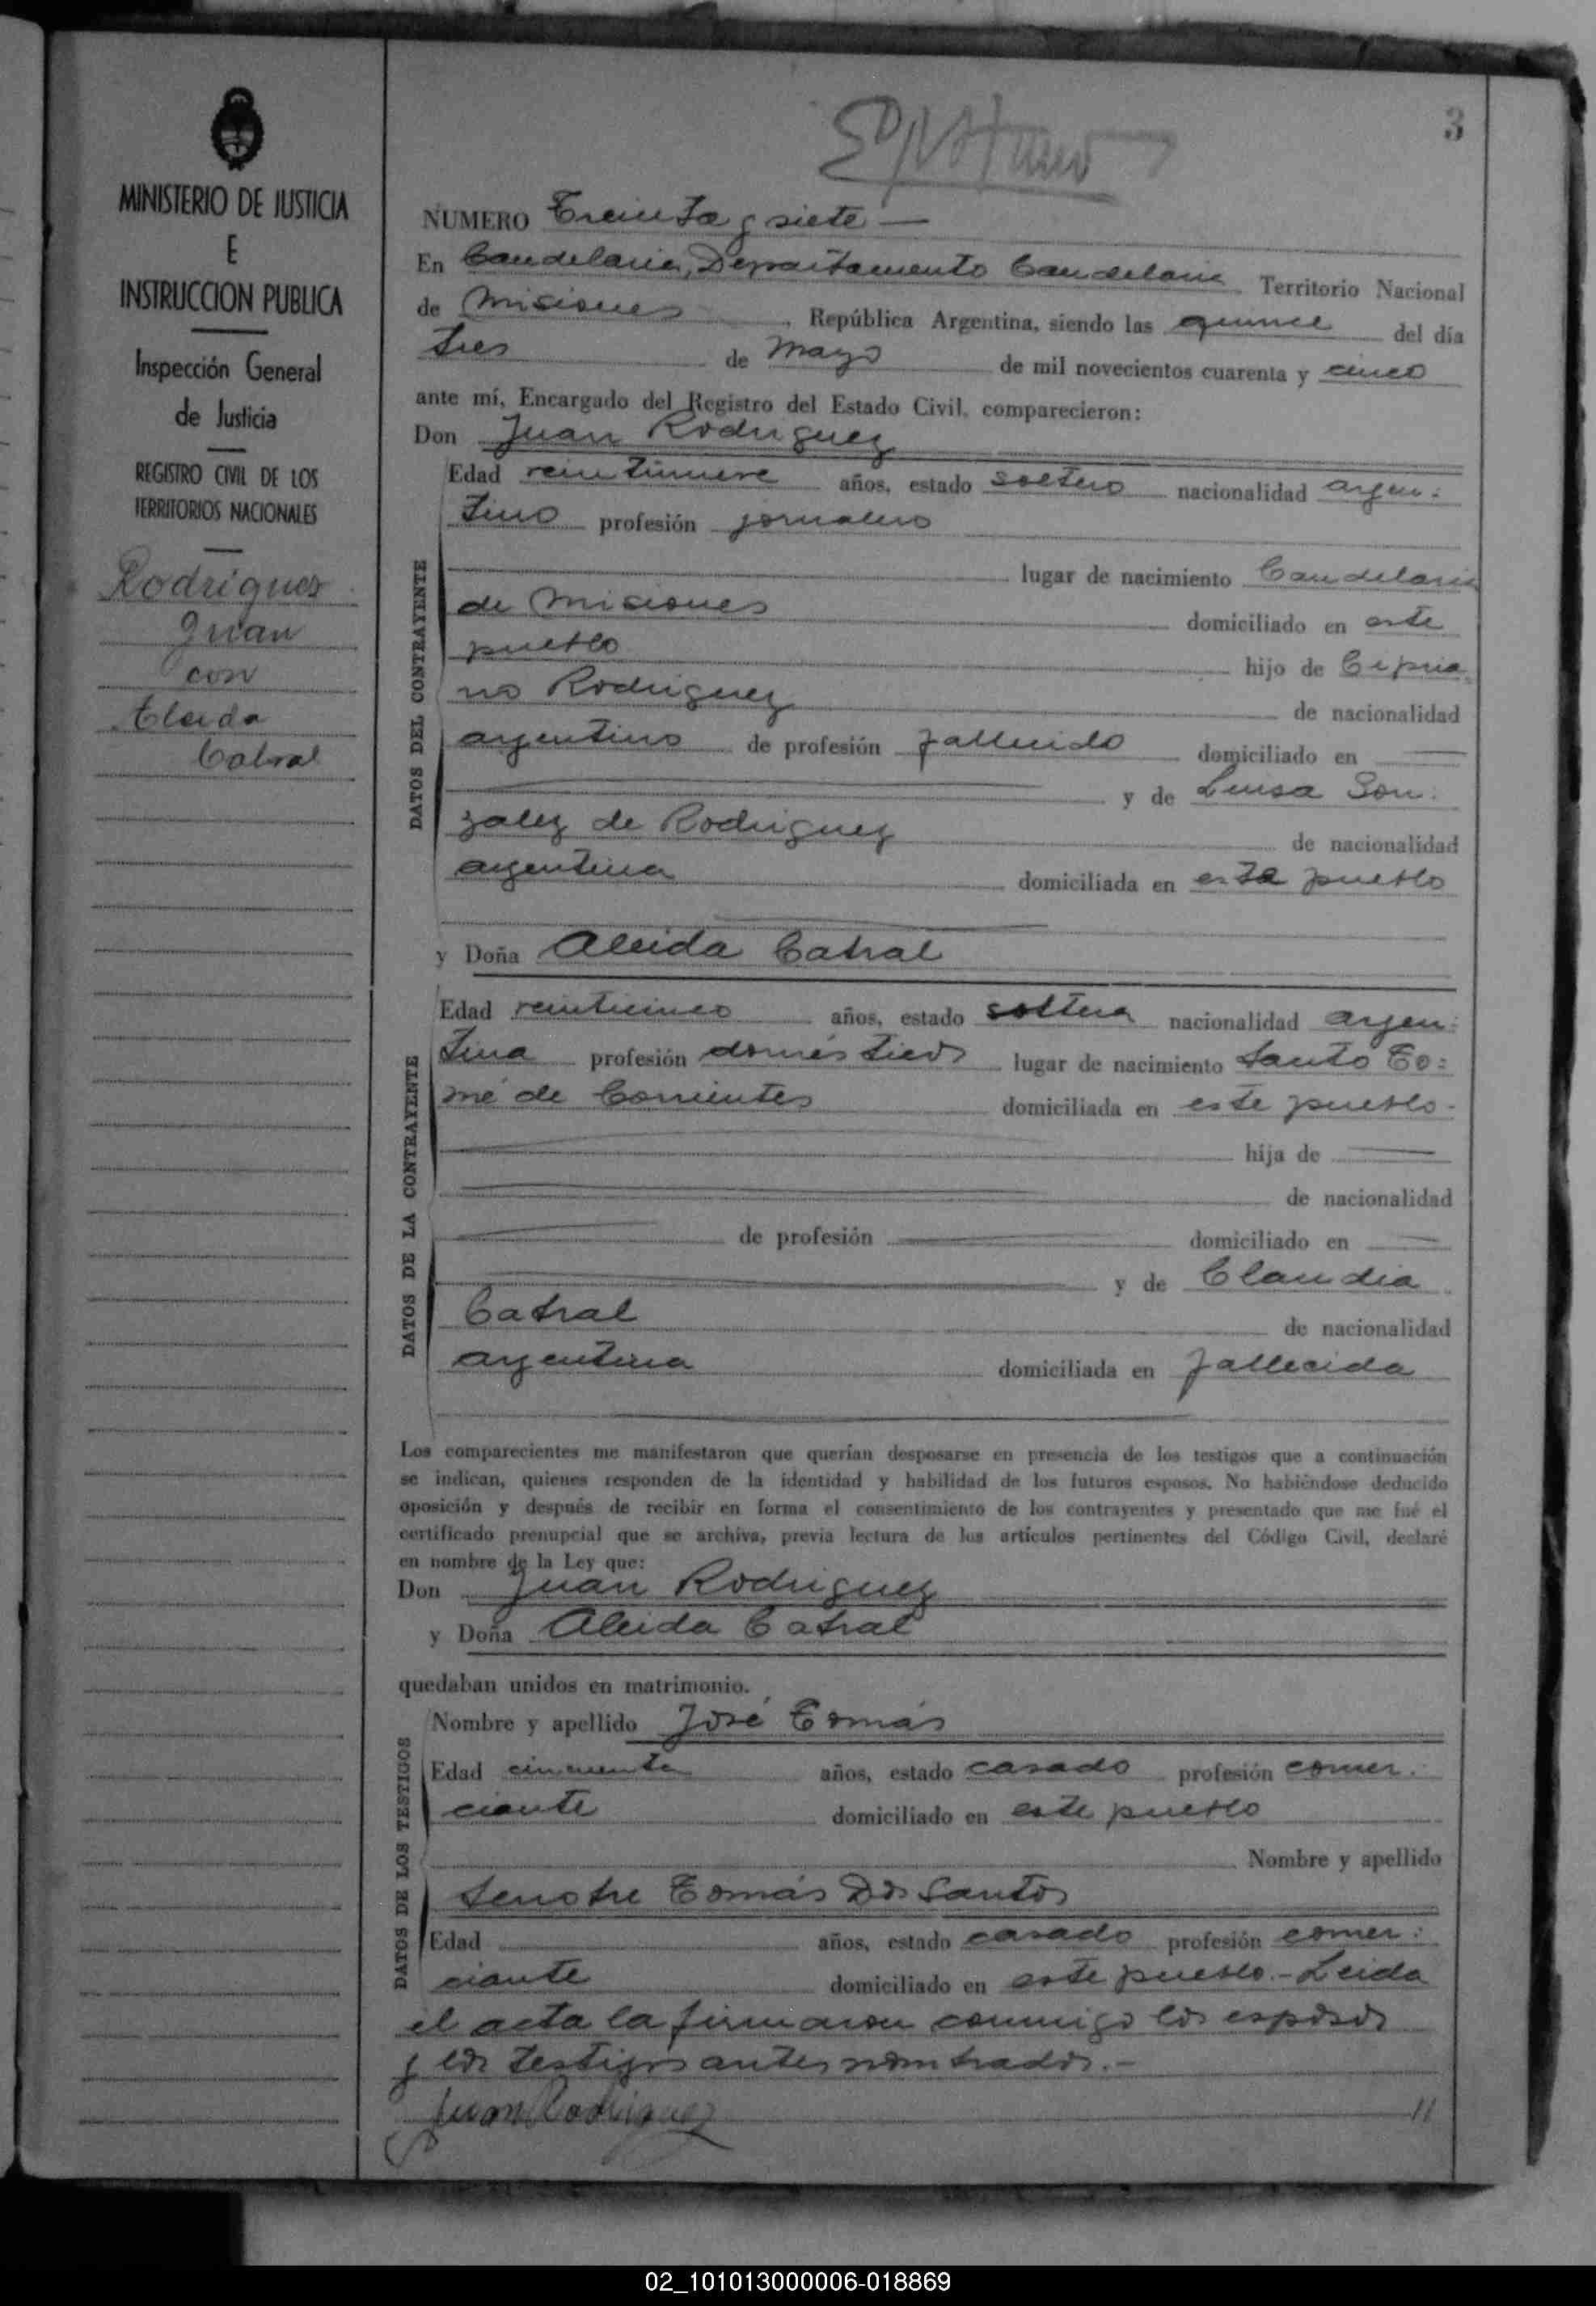 3
MINISTERIO DE JUSTICIA
E
INSTRUCCION PUBLICA
Inspección General
de Justicia
REGISTRO CIVIL DE LOS
TERRITORIOS NACIONALES
Rodriguez
Juan
con
Eleida
Cabral
NUMERO Treinta y siete —
En Candelaria, Departamento Candelaria Territorio Nacional
de Misiones, República Argentina, siendo las quince del día
tres de Mayo de mil novecientos cuarenta y cinco
ante mí, Encargado del Registro del Estado Civil, comparecieron:
Don Juan Rodriguez
DATOS DEL CONTRAYENTE
Edad veintinueve años, estado soltero nacionalidad argen-
tino profesión jornalero
lugar de nacimiento Candelaria
de Misiones domiciliado en este
pueblo hijo de Cipria-
no Rodriguez de nacionalidad
argentino de profesión fallecido domiciliado en —
y de Luisa Gon-
zalez de Rodriguez de nacionalidad
argentina domiciliada en este pueblo
y Doña Aleida Cabral
DATOS DE LA CONTRAYENTE
Edad veinticinco años, estado soltera nacionalidad argen-
tina profesión domésticos lugar de nacimiento Santo To-
mé de Corrientes domiciliada en este pueblo-
hija de —
de nacionalidad
de profesión — domiciliado en —
y de Claudia
Cabral de nacionalidad
argentina domiciliada en fallecida
Los comparecientes me manifestaron que querían desposarse en presencia de los testigos que a continuación
se indican, quienes responden de la identidad y habilidad de los futuros esposos. No habiéndose deducido
oposición y después de recibir en forma el consentimiento de los contrayentes y presentado que me fué el
certificado prenupcial que se archiva, previa lectura de los artículos pertinentes del Código Civil, declaré
en nombre de la Ley que:
Don Juan Rodriguez
y Doña Aleida Cabral
quedaban unidos en matrimonio.
DATOS DE LOS TESTIGOS
Nombre y apellido José Tomás
Edad cincuenta años, estado casado profesión comer-
ciante domiciliado en este pueblo
Nombre y apellido
Tomás Dos Santos
Edad — años, estado casado profesión comer-
ciante domiciliado en este pueblo.- Leida
el acta la firmaron conmigo los esposos
y los testigos antes nombrados.-
Juan Rodriguez
02_101013000006-018869